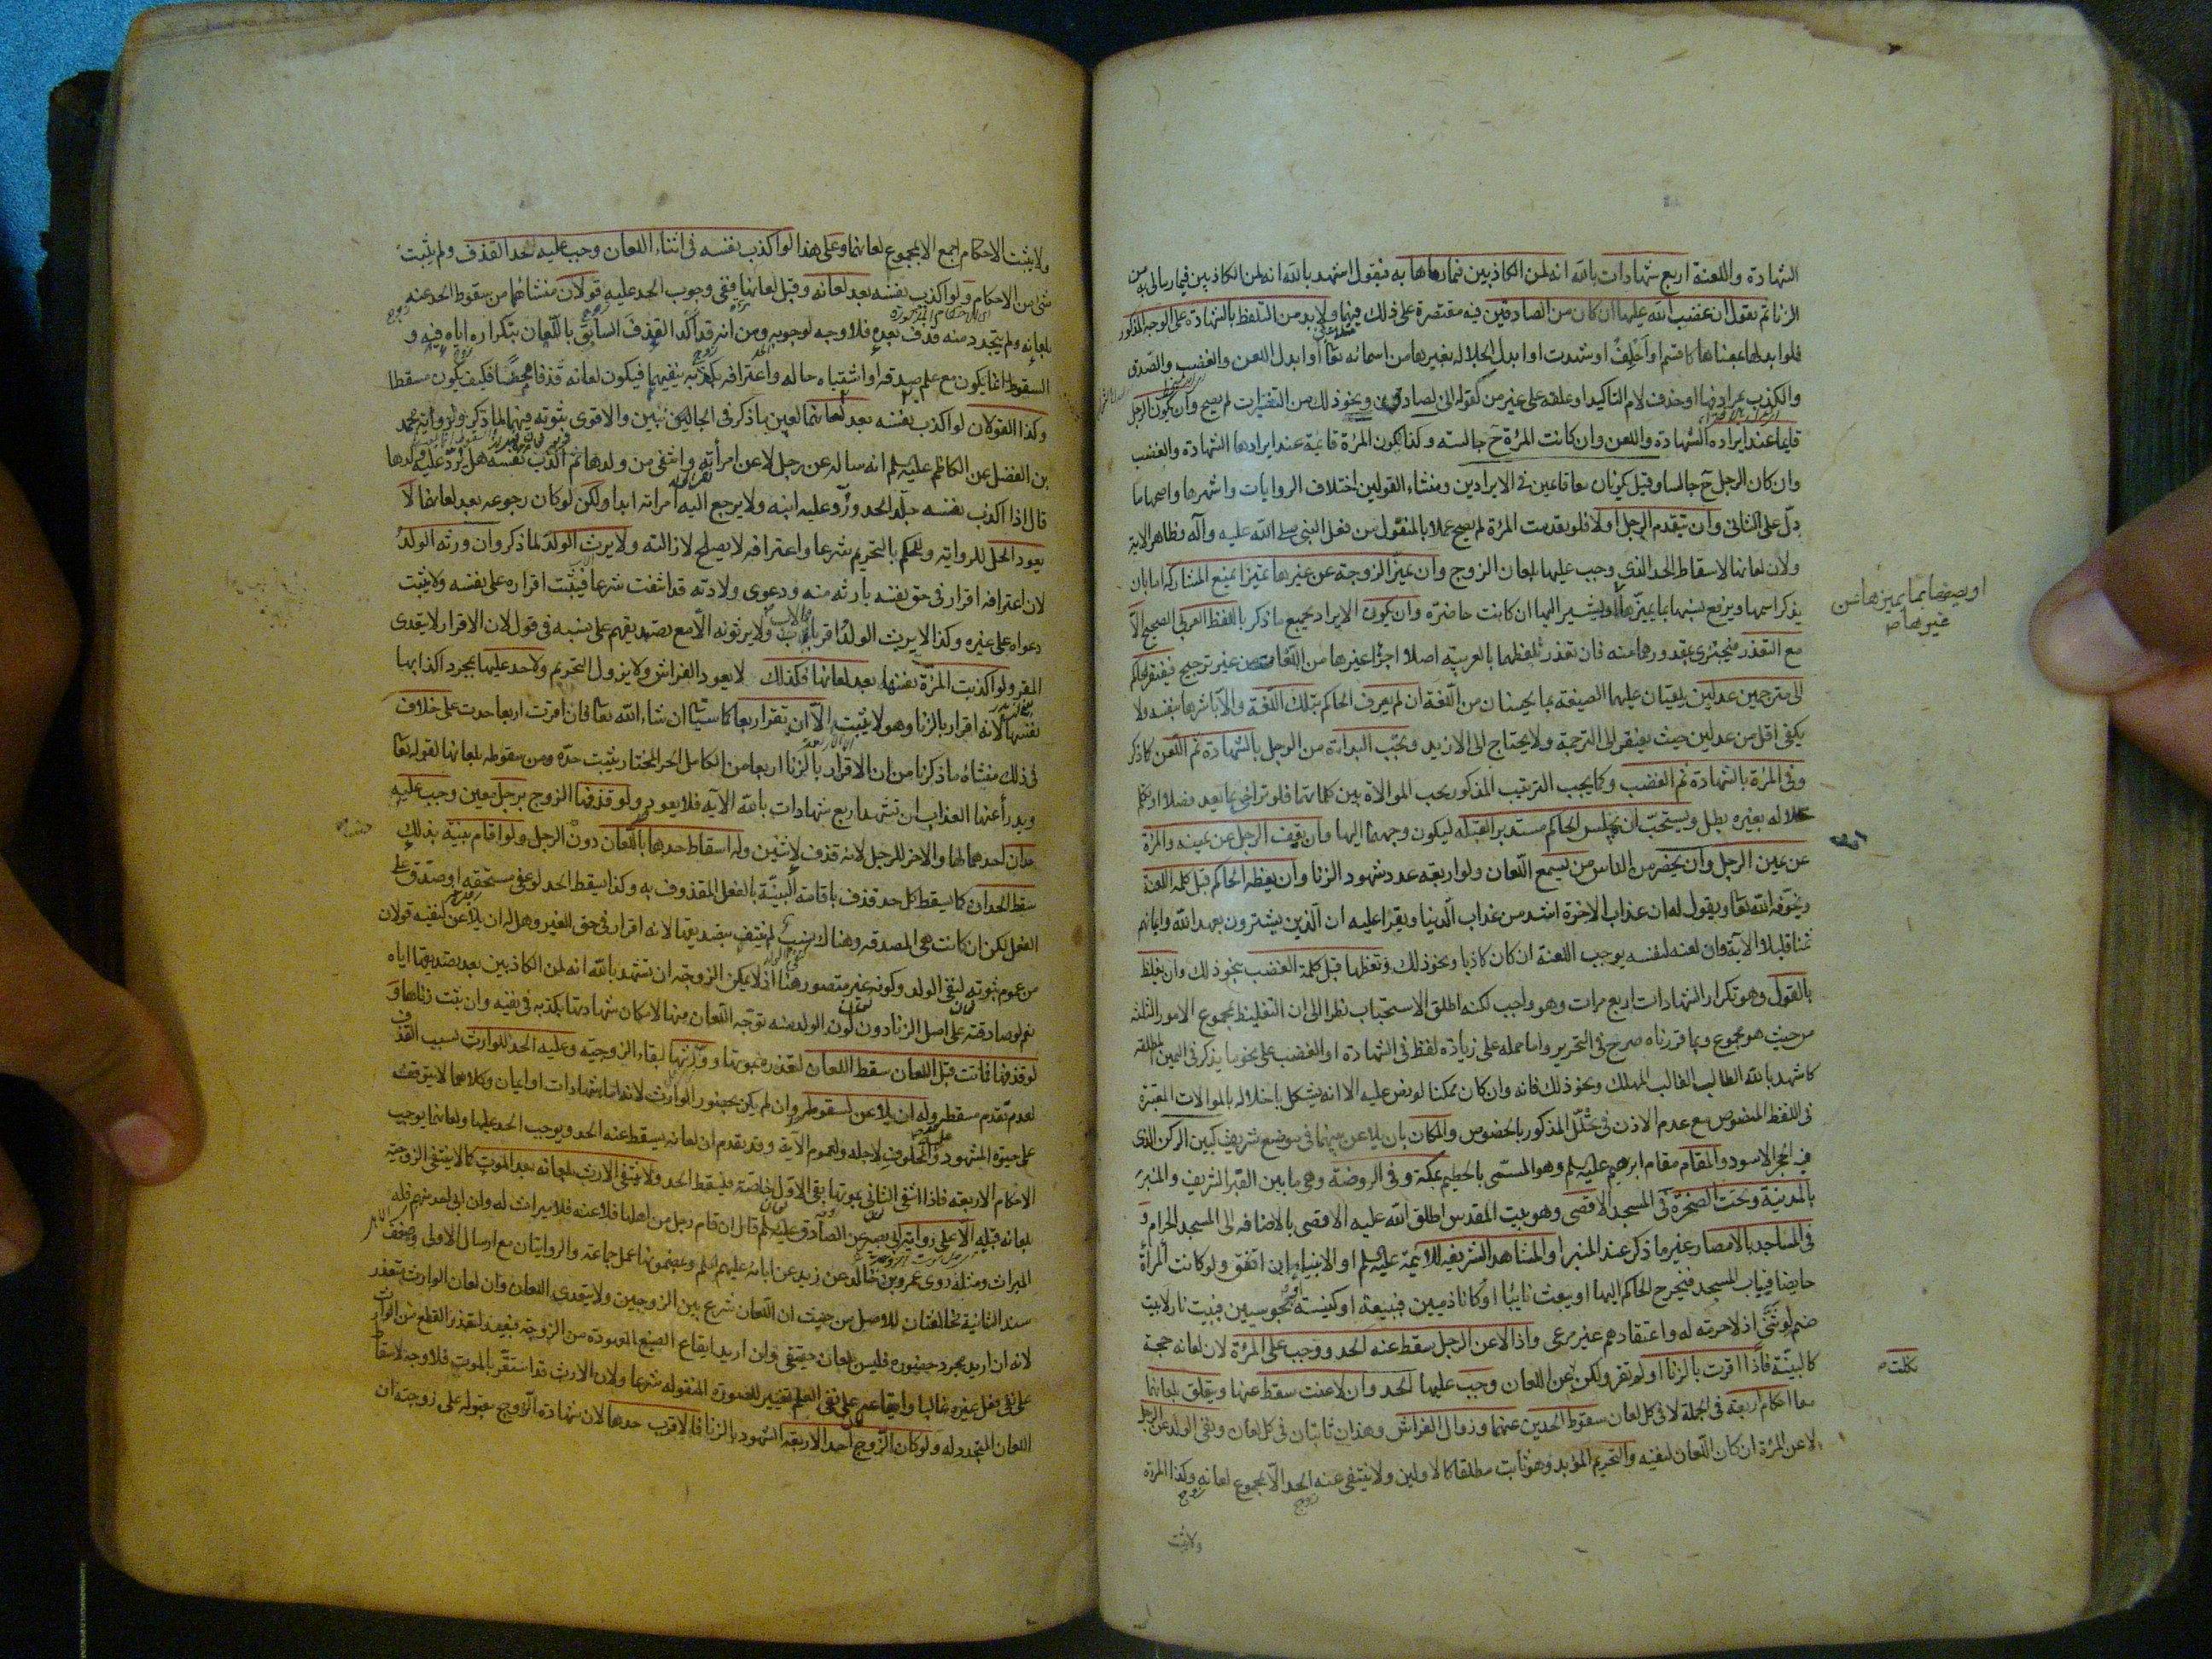 الشهادة واللعنة اربع شهادات بالله انه لمن الكاذبين فيما رماها به فتقول اشهد بالله انه لمن الكاذبين فيما رماني به من
الزنا ثم تقول ان غضب الله عليها ان كان من الصادقين فيه مقتصرة على ذلك فيهما ولا بد من التلفظ بالشهادة على الوجه المذكور
فلو ابدلها بمعناها كاقسم او احلف او شهدت او ابدل الجلالة بغيرها من اسمائه تعا او ابدل اللعن والغضب والصدق
والكذب بمرادفها او حذف لام التاكيد او علقه على غير من كقوله اني لصادق ونحو ذلك من التغييرات لم يصح وان يكون الرجل
قائما عند ايراده الشهادة واللعن وان كانت المرئة ح جالسة وكذا يكون المرئة قائمة عند ايرادها الشهادة والغضب
وان كان الرجل ح جالسا وقيل يكونان معا قائمين في الايرادين ومنشاء القولين اختلاف الروايات واشهرها واصحها ما
دل على الثاني وان يتقدم الرجل اولا فلو تقدمت المرئة لم يصح عملا بالمنقول من فعل النبي صلى الله عليه وآله وظاهر الاية
ولان لعانها لاسقاط الحد الذي وجب عليها بلعان الزوج وان تميز الزوجة عن غيرها تميزا يمنع المشاركة اما بان
يذكر اسمها ويرفع نسبها بما يميزها او يشير اليها ان كانت حاضرة وان يكون الايراد بجميع ما ذكر باللفظ العربي الصحيح الا
او يصفها بما يميزها عن
غيرها ص
مع التعذر فيجتزى بمقدورهما منه فان تعذر تلفظهما بالعربية اصلا اجزا غيرها من اللغات من غير ترجيح فيفتقر الحاكم
الى مترجمين عدلين يلقيان عليهما الصيغة بما يحسنان من اللغة ان لم يعرف الحاكم بتلك اللغة والا باشرها بنفسه ولا
يكفى اقل من عدلين حيث يفتقر الى الترجمة ولا يحتاج الى الازيد وتجب البداءة من الرجل بالشهادة ثم اللعن كما ذكر
وفي المرئة بالشهادة ثم الغضب وكما يجب الترتيب المذكور يجب الموالاة بين كلماتهما فلو تراخى بما يعد فصلا او تكلم
خلاله بغيره بطل ويستحب ان يجلس الحاكم مستدبر القبلة ليكون وجههما اليها وان يقف الرجل عن يمينه والمرئة
عن يمين الرجل وان يحضر من الناس من يسمع اللعان ولو اربعة عدد شهود الزنا وان يعظه الحاكم قبل كلمة اللعنة
ويخوفه الله تعا ويقول له ان عذاب الاخرة اشد من عذاب الدنيا ويقرا عليه ان الذين يشترون بعهد الله وايمانهم
ثمنا قليلا الاية وان لعنه لنفسه يوجب اللعنة ان كان كاذبا ونحو ذلك وتعظها قبل كلمة الغضب بنحو ذلك وان يغلظ
بالقول وهو تكرار الشهادات اربع مرات وهو واجب لكنه اطلق الاستحباب نظرا الى ان التغليظ بمجموع الامور الثلثة
من حيث هو مجموع وبما قررناه صرح في التحرير واما حمله على زيادة لفظ في الشهادة او الغضب على نحو ما يذكر في اليمين المطلقة
كاشهد بالله الطالب الغالب المهلك ونحو ذلك فانه وان كان ممكنا لو نص عليه الا انه يشكل باخلاله بالموالات المعتبرة
في اللفظ المنصوص مع عدم الاذن في تخلل المذكور بالخصوص والمكان بان يلاعن بينهما في موضع شريف كبين الركن الذي
فيه الحجر الاسود والمقام مقام ابرهيم عليه السلم وهو المسمى بالحطيم بمكة وفي الروضة وهي ما بين القبر الشريف والمنبر
بالمدينة وتحت الصخرة في المسجد الاقصى وهو بيت المقدس اطلق الله عليه الاقصى بالاضافة الى المسجد الحرام و
في المساجد بالامصار غير ما ذكر عند المنبر او المشاهد الشريفة للائمة عليهم السلم او الانبياء ان اتفق ولو كانت المرأة
حايضا فباب المسجد فيخرج الحاكم اليها او يبعث نايبا او كانا ذميين فبيعة او كنيسة او مجوسيين فبيت نار لا بيت
صنم لوثني اذ لا حرمة له واعتقادهم غير مرعى واذا لاعن الرجل سقط عنه الحد ووجب على المرئة لان لعانه حجة
كالبينة فاذا اقرت بالزنا او لم تقر ولكن عن اللعان وجب عليها الحد وان لاعنت سقط عنها ويتعلق بلعانهما
نكلت ص
معا احكام اربعة في الجملة لا في كل لعان سقوط الحدين عنهما وزوال الفراش وهذان ثابتان في كل لعان ونفى الولد عن الرجل
لا عن المرئة ان كان اللعان لنفيه والتحريم المؤبد وهو ثابت مطلقا كالاولين ولا ينتفى عنه الحد الا بمجموع لعانه وكذا المرئة
ولا يثبت
ولا يثبت الاحكام اجمع الا بمجموع لعانهما وعلى هذا لو اكذب نفسه في اثناء اللعان وجب عليه الحد القذف ولم يثبت
شئ من الاحكام ولو اكذب نفسه بعد لعانه وقبل لعانها ففى وجوب الحد عليه قولان منشائهما من سقوط الحد عنه
بلعانه ولم يتجدد منه قذف بعده فلا وجه لوجوبه ومن انه قد اكد القذف السابق باللعان بتكراره اياه فيه و
السقوط انما يكون مع علم صدقه او اشتباه حاله واعترافه بكذبه ينفيهما فيكون لعانه قذفا محضا فكيف يكون مسقطا
وكذا القولان لو اكذب نفسه بعد لعانهما لعين ما ذكر في الجانبين والاقوى ثبوته فيهما لما ذكر ولرواية محمد
بن الفضل عن الكاظم عليه السلم انه ساله عن رجل لاعن امرأته وانتفى من ولدها ثم اكذب نفسه هل يرد عليه ولدها
قال اذا اكذب نفسه جلد الحد ورد عليه ابنه ولا يرجع اليه امراته ابدا ولكن لو كان رجوعه بعد لعانهما لا
يعود الحل للرواية وللحكم بالتحريم شرعا واعترافه لا يصلح لازالته ولا يرث الولد لما ذكر وان ورثه الولد
لان اعترافه اقرار في حق نفسه بارثه منه ودعوى ولادته قد انتفت شرعا فيثبت اقراره على نفسه ولا يثبت
دعواه على غيره وكذا لا يرث الولد اقرباء الاب ولا يرثونه الا مع تصديقهم على نسبه في قول لان الاقرار لا يتعدى
المقر ولو اكذبت المرئة نفسها بعد لعانها فكذلك لا يعود الفراش ولا يزول التحريم ولا حد عليها بمجرد اكذابها
نفسها لانه اقرار بالزنا وهو لا يثبت الا ان تقر اربعا كما سياتى ان شاء الله تعا فان اقرت اربعا حدت على خلاف
في ذلك منشاه ما ذكرنا من ان الاقرار بالزنا اربعا من الكامل الحر المختار يثبت حده ومن سقوطه بلعانها لقوله تعا
ويدرأ عنها العذاب ان تشهد اربع شهادات بالله الاية فلا يعود ولو قذفها الزوج برجل معين وجب عليه
حدان احدهما لها والاخر للرجل لانه قذف لاثنين وله اسقاط حدها باللعان دون الرجل ولو اقام بينة بذلك
سقط الحدان كما يسقط كل حد قذف باقامة البينة بالفعل المقذوف به وكذا يسقط الحد لو عفى مستحقه او صدق على
الفعل لكن ان كانت هي المصدقة وهناك نسب لم ينتف بتصديقها لانه اقرار في حق الغير وهل له ان يلاعن لنفيه قولان
من عموم ثبوته لنفى الولد وكونه غير متصور هنا اذ لا يمكن الزوجة ان تشهد بالله انه لمن الكاذبين بعد تصديقها اياه
نعم لو صادقته على اصل الزنا دون كون الولد منه توجه اللعان منها لامكان شهادتها بكذبه في نفيه وان ثبت زناها و
لو قذفها فماتت قبل اللعان سقط اللعان لتعذره بموتها وورثها لبقاء الزوجية وعليه الحد للوارث بسبب القذف
لعدم تقدم مسقط وله ان يلاعن لسقوطه وان لم يكن بحضور الوارث لانه اما شهادات او ايمان وكلاهما لا يتوقف
على حيوة المشهود والمحلوف لاجله ولعموم الاية وقد تقدم ان لعانه يسقط عنه الحد ويوجب الحد عليها ولعانهما يوجب
الاحكام الاربعة فاذا انتفى الثاني بموتها بقى الاول خاصة فيسقط الحد ولا ينتفى الارث بلعانه بعد الموت كما لا ينتفى الزوجية
بلعانه قبله الا على رواية ابي بصير عن الصادق عليه السلم قال ان قام رجل من اهلها فلاعنه فلا ميراث له وان ابى احد منهم فله
الميراث ومثله روى عمرو بن خالد عن زيد عن ابائه عليهم السلم وبمضمونها عمل جماعة والروايتان مع ارسال الاولى وضعف
سند الثانية تخالفان للاصل من حيث ان اللعان شرع بين الزوجين ولا يتعدى اللعان وان لعان الوارث متعذر
لانه ان اريد مجرد حضوره فليس بلعان حقيقى وان اريد ايقاع الصيغ المعهودة من الزوجة فبعيد لتعذر القطع من الوارث
على نفى فعل غيره غالبا وايقاعه على نفى العلم تغيير للصورة المنقولة شرعا ولان الارث قد استقر بالموت فلا وجه لاسقاط
اللعان المتجدد له ولو كان الزوج احد الاربعة الشهود بالزنا فالاقرب حدها لان شهادة الزوج مقبولة على زوجته ان